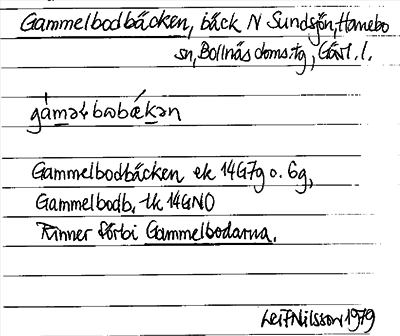 Gammelbodbäcken, bäck N Sundsjön, Hanebo
sn, Bollnäs doms:tg, Gävl. l.
Gammelbodbäcken ek 14G7g o. 6g,
Gammelbodb. tk 14GNO
Rinner förbi Gammelbodarna.
Leif Nilsson 1979